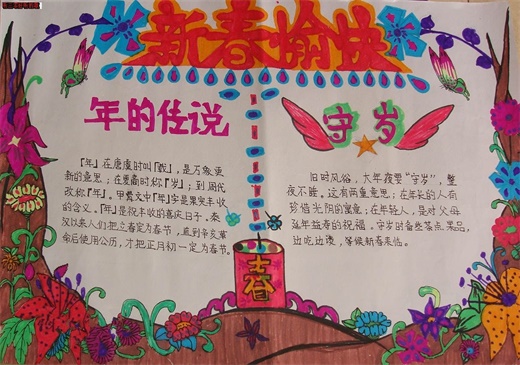 新春愉快
年的传说
『年』在唐虞时叫『载』,是万象更
新的意思;在夏商时称『岁』;到周代
改称『年』。甲骨文中『年』字是果实丰收
的含义。『年』是祝丰收的喜庆日子。秦
汉以来人们把立春定为春节,直到辛亥革
命后使用公历,才把正月初一定为春节。
守岁
旧时风俗,大年夜要“守岁”,整
夜不睡。这有两重意思:在年长的人有
珍惜光阴的寓意;在年轻人,是对父母
延年益寿的祝福。守岁时备些茶点果品,
边吃边谈,等候新春来临。
春